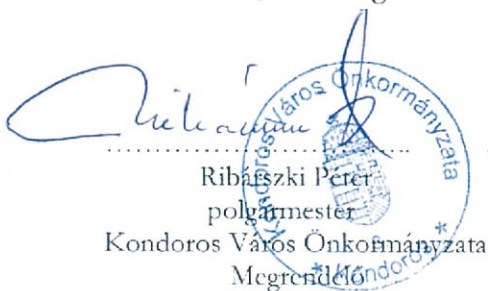 Ribárszki Péter
polgármester
Kondoros Város Önkormányzata
Megrendelő
Kondoros Város Önkormányzata
* Kondoros *